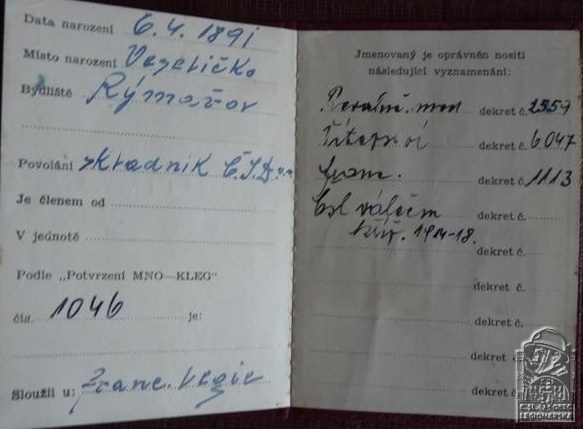 Data narození 6. 4. 1891
Místo narození Veseličko
Bydliště Rýmařov
Povolání skladník Č.S.D.
Je členem od
V jednotě
Podle „Potvrzení MNO—KLEG"
čís. 1046 je:
Sloužil u: Franc. legie
Jmenovaný je oprávněn nositi
následující vyznamenání:
med dekret č. 2559
dekret č. 6.047
franc. dekret č. 1113
čsl válečn dekret č.
kříž. 1914-18.
dekret č.
dekret č.
dekret č.
dekret č.
dekret č.